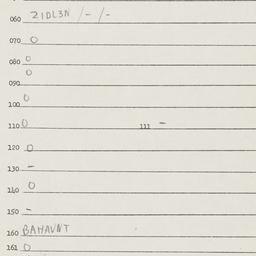 060 ZIDLZN /-/-
070 O
080 O
O
090
100 O
110 O 111 -
120 O
130 -
140 O
150 -
160 BAHAVNT
161 O